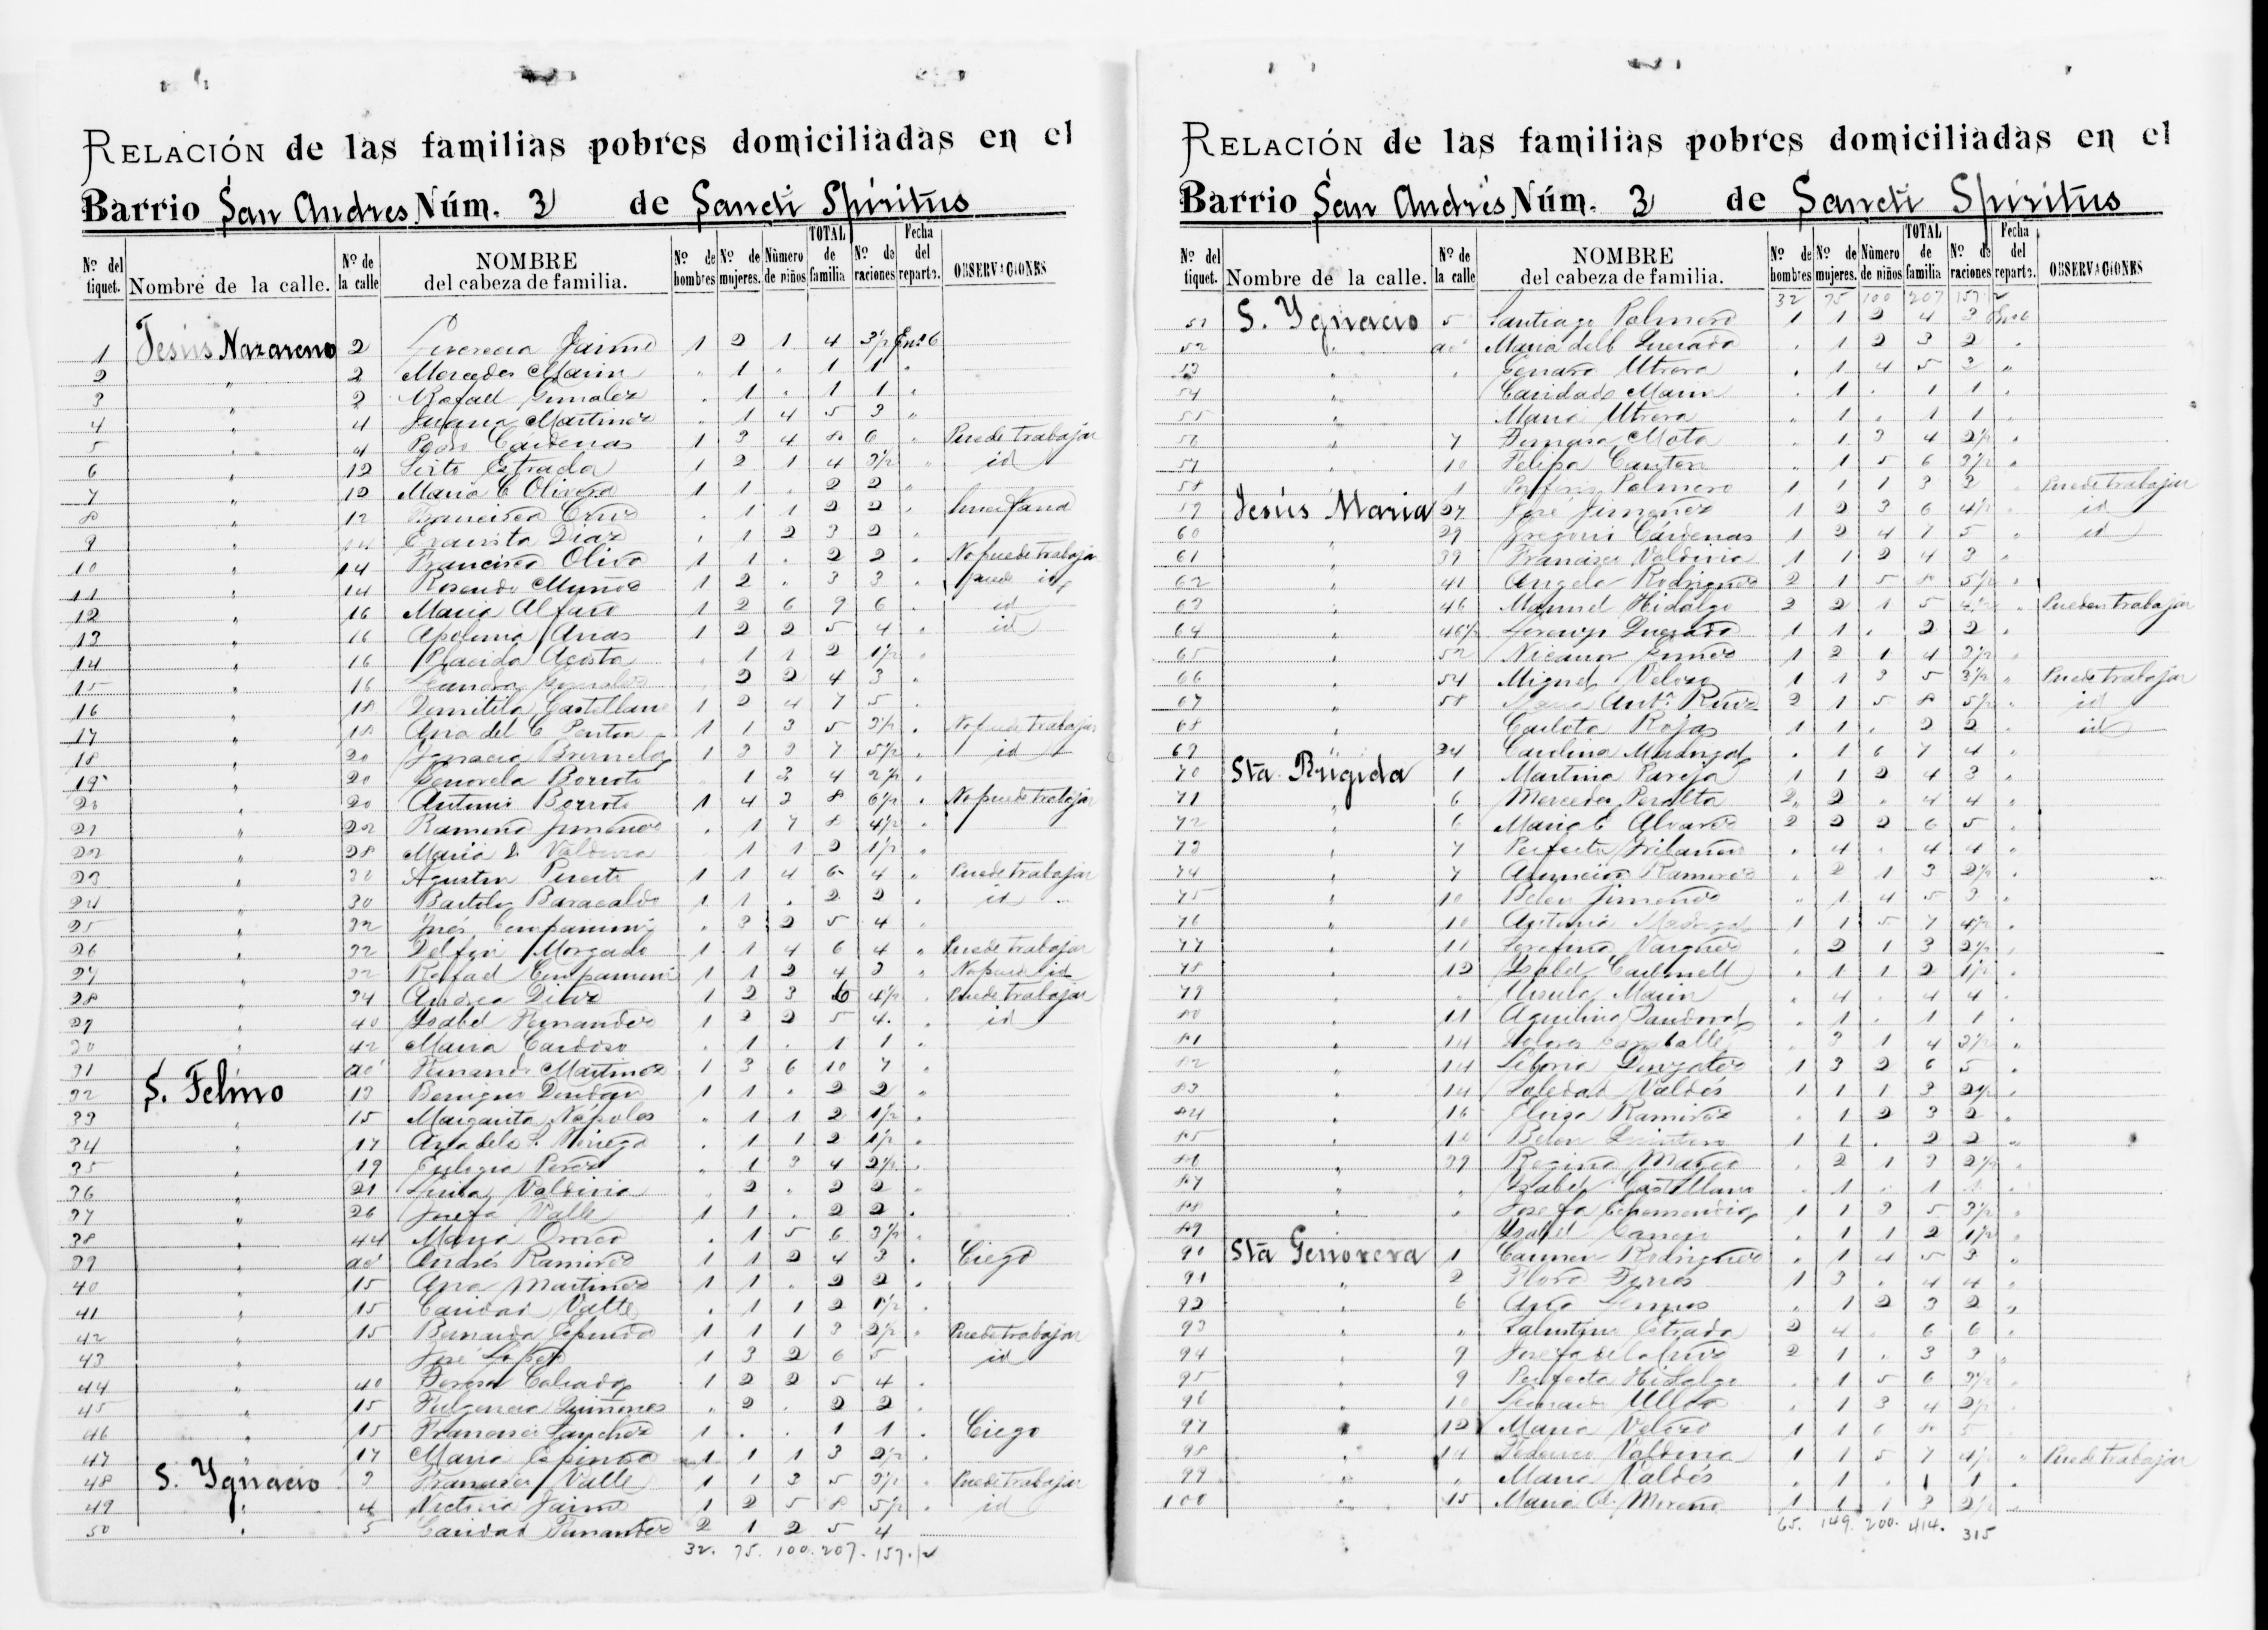 RELACIÓN de las familias pobres domiciliadas en el
Barrio San Andres Núm. 3 de Sancti Spiritus
Nº del tiquet. Nombre de la calle. Nº de la calle NOMBRE del cabeza de familia. Nº de hombres Nº de mujeres. Número de niños TOTAL de familia Nº de raciones Fecha del reparto. OBSERVACIONES
1 Jesús Nazareno 2 Jaime 1 2 1 4 3½ En. 6
2 " 2 Mercedes Marin . 1 . 1 1 "
3 " 2 Rafael Gonzalez . 1 . 1 1 .
4 " 4 Juana Martinez . 1 4 5 3 "
5 " 4 Pedro Cárdenas 1 3 4 8 6 . Puede trabajar
6 " 12 Sixto Estrada 1 2 1 4 3½ " id
7 " 12 Maria C Olivera 1 1 . 2 2 "
8 " 12 Francisca Cruz . 1 1 2 2 .
9 " 14 Evarista Diaz . 1 2 3 2 .
10 " 14 Francisco Oliva 1 1 . 2 2 . No puede trabajar
11 " 14 Rosendo Muñoz 1 2 . 3 3 . puede id
12 " 16 Maria Alfaro 1 2 6 9 6 . id
13 " 16 Apolonia Arias 1 2 2 5 4 . id
14 " 16 Placida Acosta . 1 1 2 1½ .
15 " 16 Leandra Gonzalez . 2 2 4 3 .
16 " 18 Domitila Castellano 1 2 4 7 5 .
17 " 18 Ana del C Penton 1 1 3 5 3½ . No puede trabajar
18 " 20 Ignacia 1 3 3 7 5½ . id
19 " 20 Genovela Borroto . 1 3 4 2½ .
20 " 20 Antonio Borroto 1 4 3 8 6½ . No puede trabajar
21 " 22 Ramona Jimenez . 1 7 8 4½ .
22 " 28 Maria J. Valdivia . 1 1 2 1½ .
23 " 30 Agustin 1 1 4 6 4 " Puede trabajar
24 " 30 Bartolo Baracaldo 1 1 . 2 2 . id
25 " 32 Inés Companioni . 3 2 5 4 .
26 " 32 Delfin Morgado 1 1 4 6 4 " Puede trabajar
27 " 32 Rafael Companioni 1 1 2 4 3 " No puede id
28 " 34 Andrea Diaz 1 2 3 6 4½ . Puede trabajar
29 " 40 Ysabel Fernandez 1 2 2 5 4 . id
30 " 42 Maria Cardoso . 1 . 1 1 .
31 " ac Fernando Martinez 1 3 6 10 7 "
32 S. Telmo 13 Benigno 1 1 . 2 2 "
33 " 15 Margarita Nápoles . 1 1 2 1½ .
34 " 17 Ana de la C. Noriega . 1 1 2 1½ .
35 " 19 Eulogia Perez . 1 3 4 2½ .
36 " 21 Valdivia . 2 . 2 2 .
37 " 26 Josefa Valle 1 1 . 2 2 .
38 " 44 Maria Orozco . 1 5 6 3½ .
39 " ac Andrés Ramirez 1 1 2 4 3 . Ciego
40 " 15 Ana Martinez 1 1 . 2 2 .
41 " 15 Caridad Valle . 1 1 2 1½ .
42 " 15 Bernarda Espinosa 1 1 1 3 2½ . Puede trabajar
43 " José Lopez 1 3 2 6 5 id
44 " 40 Teresa Calzada 1 2 2 5 4 .
45 " 15 Fulgencia Quiñones . 2 . 2 2 .
46 " 15 Francisco Sanchez 1 . . 1 1 . Ciego
47 " 17 Maria Espinosa 1 1 1 3 2½ .
48 S. Ygnacio 3 Francisco Valle 1 1 3 5 3½ . Puede trabajar
49 " 4 Victoria Jaime 1 2 5 8 5½ . id
50 " 5 Caridad Fernandez 2 1 2 5 4
32. 75. 100. 207. 157.½
RELACIÓN de las familias pobres domiciliadas en el
Barrio San Andrés Núm. 3 de Sancti Spiritus
Nº del tiquet. Nombre de la calle. Nº de la calle NOMBRE del cabeza de familia. Nº de hombres Nº de mujeres. Número de niños TOTAL de familia Nº de raciones Fecha del reparto. OBSERVACIONES
32 75 100 207 157½
51 S. Ygnacio 5 Santiago Palmero 1 1 2 4 3 En. 6
52 " ac Maria del C Quesada . 1 2 3 2 .
53 " . Genara Utrera . 1 4 5 3 "
54 " Caridad Marin . 1 . 1 1 .
55 " Maria Utrera " 1 . 1 1 .
56 " 7 Tomasa Mota . 1 3 4 2½ .
57 " 10 Felipa Canton . 1 5 6 3½ .
58 " 1 Porfirio Palmero 1 1 1 3 2 . Puede trabajar
59 Jesús Maria 27 José Jimenez 1 2 3 6 4½ . id
60 " 29 Gregorio Cárdenas 1 2 4 7 5 " id
61 " 39 Francisco Valdivia 1 1 2 4 3 .
62 " 41 Angela Rodriguez 2 1 5 8 5½ .
63 " 46 Manuel Hidalgo 2 2 1 5 4½ . Pueden trabajar
64 " 46½ Lorenzo Quesada 1 1 . 2 2 .
65 " 52 Nicanor Gomez 1 2 1 4 3½ .
66 " 54 Miguel Veloso 1 1 3 5 3½ " Puede trabajar
67 " 58 Maria Antª Ruiz 2 1 5 8 5½ . id
68 " Carlota Rojas 1 1 . 2 2 . id
69 " 34 Carolina Madrigal . 1 6 7 4 .
70 Sta Brigida 1 Martina Pareja 1 1 2 4 3 .
71 " 6 Mercedes Peralta 2 2 . 4 4 "
72 " 6 Maria C Alvarez 2 2 2 6 5 .
73 " 7 Perfecta . 4 . 4 4 "
74 " 7 Asuncion Ramirez . 2 1 3 2½ .
75 " 10 Belen Jimenez . 1 4 5 3 .
76 " 10 Antonia Madrigal 1 1 5 7 4½ .
77 " 11 Serafina Vazquez . 2 1 3 2½ .
78 " 12 Ysabel Carbonell . 1 1 2 1½ .
79 " " Ursula Marin . 4 . 4 4 .
80 " 11 Aquilina Sandoval . 1 . 1 1 .
81 " 14 Dolores Caraballe . 3 1 4 3½ "
82 " 14 Liboria 1 3 2 6 5 .
83 " 14 Soledad Valdés 1 1 1 3 2½ .
84 " 16 Eloisa Ramirez . 1 2 3 2 .
85 " 16 Belen Quintero 1 1 . 2 2 "
86 " 39 Regina . 2 1 3 2½ .
87 " " Ysabel Castellano . 1 . 1 1 .
88 " . Josefa 1 1 3 5 3½ .
89 " Ysabel . 1 1 2 1½ .
90 Sta Genoveva 1 Carmen Rodriguez . 1 4 5 3 "
91 " 2 Flora Torres 1 3 . 4 4 "
92 " 6 Ana . 1 2 3 2 "
93 " " Salustino Estrada 2 4 . 6 6 .
94 " 9 Josefa de la Cruz 2 1 . 3 3 "
95 " 9 Perfecta Hidalgo . 1 5 6 3½ .
96 " 10 Ulloa . 1 3 4 2½ .
97 " 12 Maria Veloso 1 1 6 8 5 .
98 " 14 Federico Valdivia 1 1 5 7 4½ " Puede trabajar
99 " " Maria Valdés . 1 . 1 1 .
100 " 15 Maria Moreno 1 1 1 3 2½ .
65. 149. 200. 414. 315